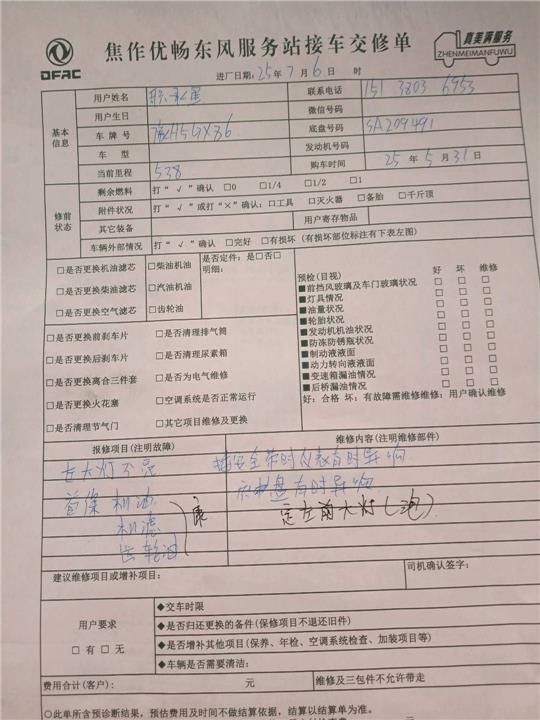 DFAC
焦作优畅东风服务站接车交修单
真美满服务
ZHENMEIMANFUWU
进厂日期:25年7月6日 时
基本信息
用户姓名
联系电话 151 3803 6953
用户生日
微信号码
车牌号 豫A5GX86
底盘号码 SA209491
车 型
发动机号码
当前里程 538
购车时间 25年5月31日
修前状态
剩余燃料 打“√”确认 □0 □1/4 □1/2 □1
附件状况 打“√”或打“×”确认:□工具 □灭火器 □备胎 □千斤顶
其它装备
用户寄存物品
车辆外部情况 打“√”确认 □完好 □有损坏 (有损坏部位标注有下表左图)
□是否更换机油滤芯
□是否更换柴油滤芯
□是否更换空气滤芯
□柴油机油
□汽油机油
□齿轮油
是否定件:是□否□
明细:
□是否更换前刹车片
□是否更换后刹车片
□是否更换离合三件套
□是否更换火花塞
□是否清理节气门
□是否清理排气筒
□是否清理尿素箱
□是否为电气维修
□空调系统是否正常运行
□其它项目维修及更换
预检(目视) 好 坏 维修
■前挡风玻璃及车门玻璃状况 □ □ □
■灯具情况 □ □ □
■油量状况 □ □ □
■轮胎状况 □ □ □
■发动机机油状况 □ □ □
■防冻防锈瓶状况 □ □ □
■制动液液面 □ □ □
■动力转向液液面 □ □ □
■变速箱漏油情况 □ □ □
■后桥漏油情况 □ □ □
好:合格 坏:有故障需维修维修:用户确认维修
报修项目(注明故障)
维修内容(注明维修部件)
左大灯不亮
插安全带时仪表有时异响
方向盘有时异响
首保 机油
机滤
齿轮油
定左前大灯(泡)
建议维修项目或增补项目:
司机确认签字:
用户要求
□有 □无
◆交车时限
◆是否归还更换的备件(保修项目不退还旧件)
◆是否增补其他项目(保养、年检、空调系统检查、加装项目等)
◆车辆是否需要清洁:
费用合计(客户): 元
维修及三包件不允许带走
〇此单所含预诊断结果,预估费用及时间不做结算依据,结算以结算单为准。